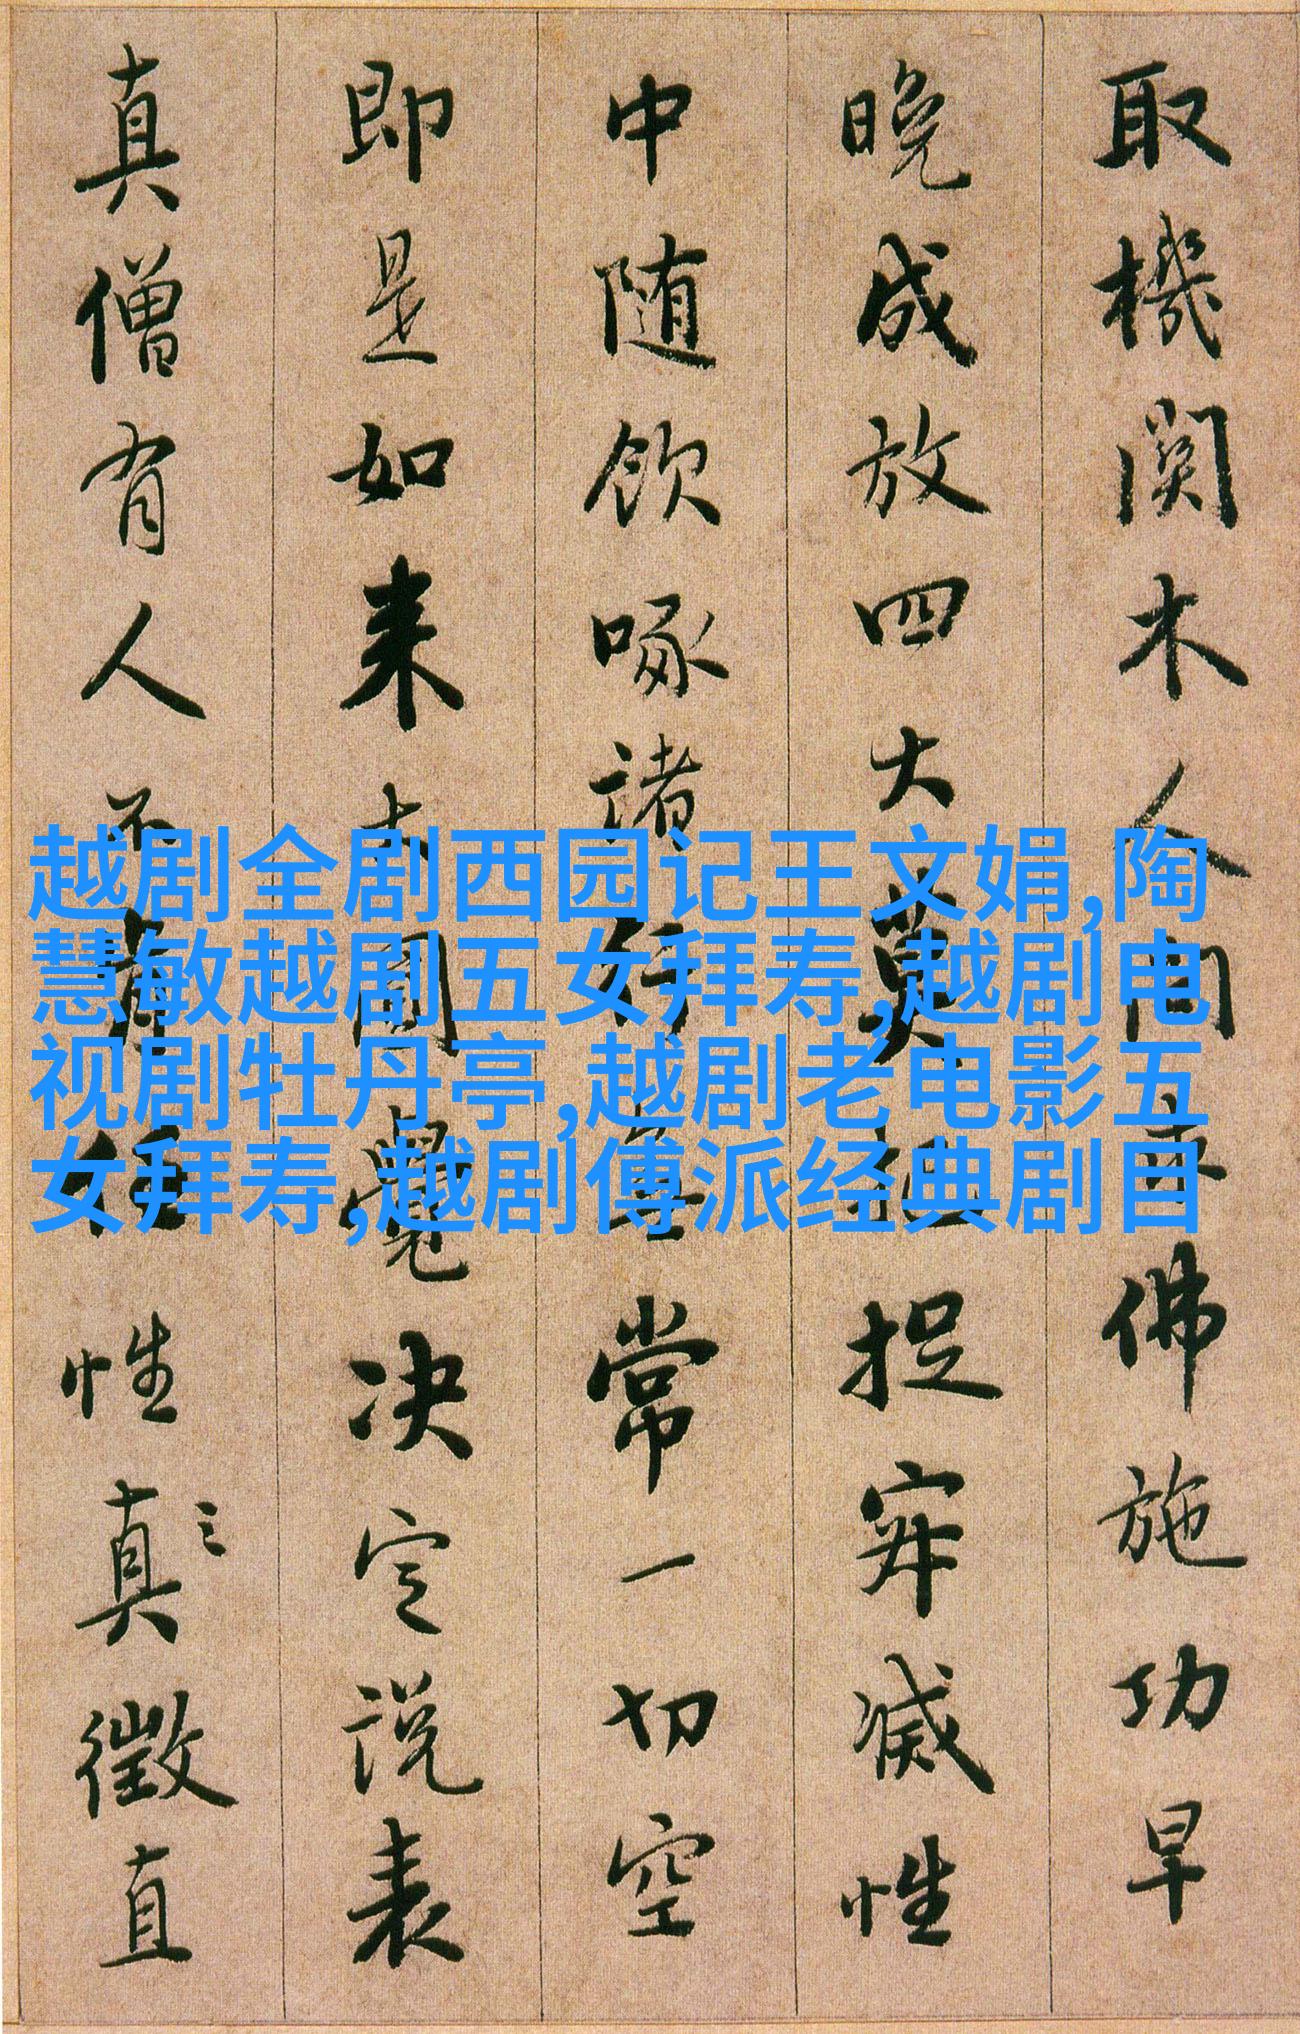 越剧全剧西园记王文娟,陶
慧敏越剧五女拜寿,越剧电
视剧牡丹亭,越剧老电影五
女拜寿,越剧傅派经典剧目
取機関木人問求佛施功早
晚成放四大莫把捉寂滅性
中随飲啄諸行無常一切空
即是如来大圓覺决定說表
真僧有人不肯任性真徵直